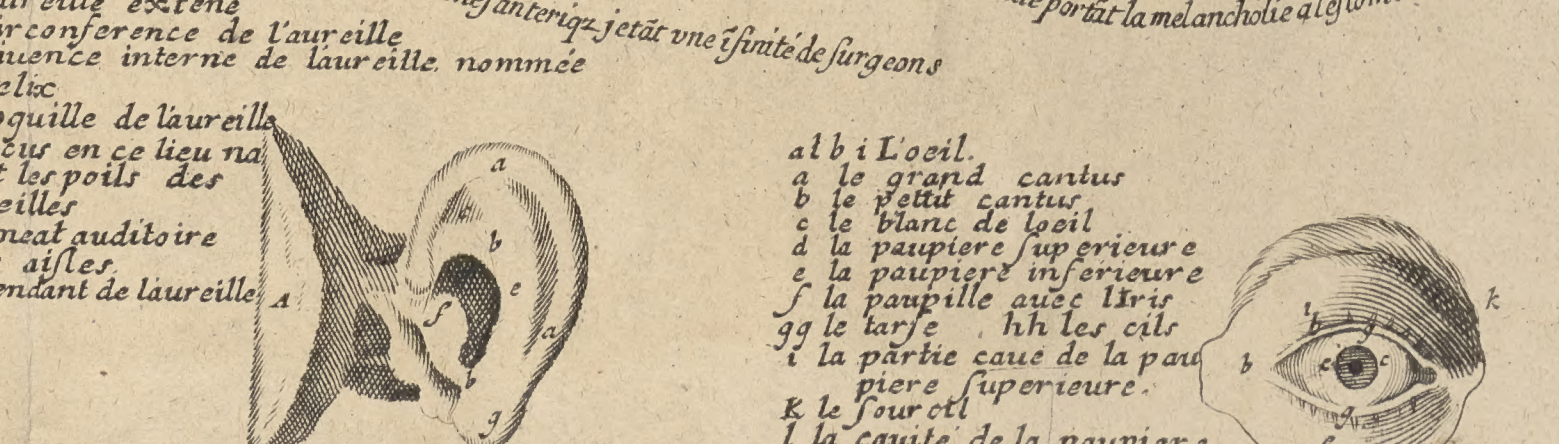 aureille externe
circonference de l'aureille
interne de laureille. nommée
elix
oquille de laureille
cus en ce lieu na
les poils des
eilles
meat auditoire
aisles.
endant de laureille
A
a
c
b
e
f
a
b
g
jetãt vne ĩfinité de surgeons
portãt la melancholie
a l b i L'oeil.
a le grand cantus
b le pettit cantus
c le blanc de loeil
d la paupiere superieure
e la paupiere inferieure
f la paupille auec lIris
gg le tarse hh les cils
i la partie caue de la pau
piere superieure.
K le sourcil
l la cauité de la paupiere
k
i
b
g
b
e
c
g